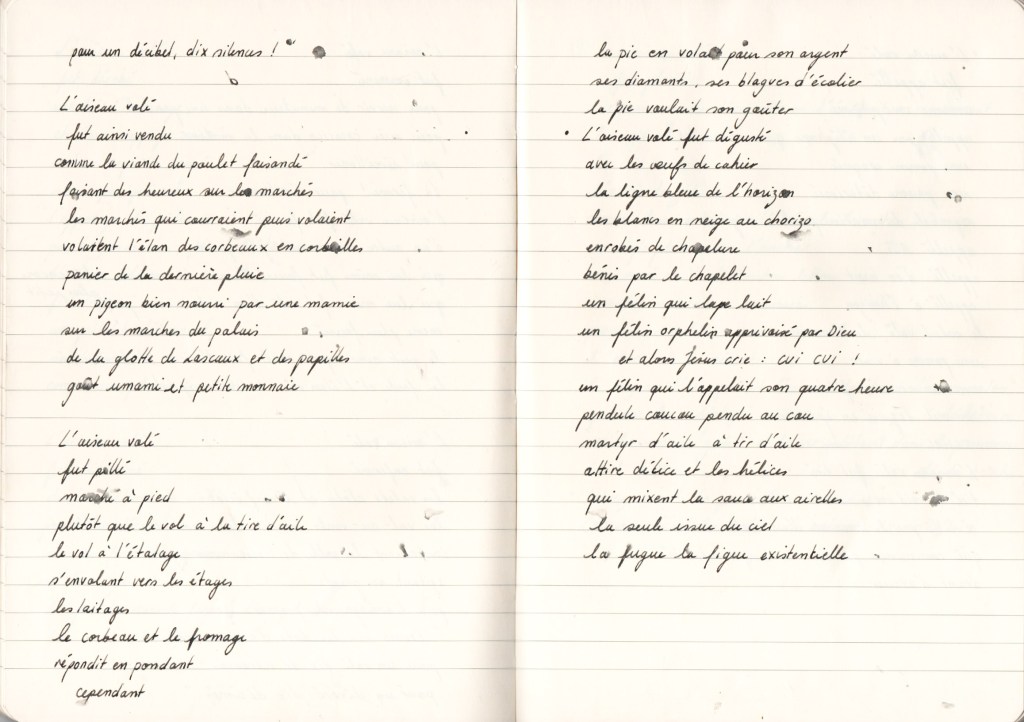 pour un décibel, dix silences !
L'oiseau volé
fut ainsi vendu
comme la viande du poulet faisandé
faisant des heureux sur les marchés
les marchés qui couraient puis volaient
volaient l'élan des corbeaux en corbeilles
panier de la dernière pluie
un pigeon bien nourri par une mamie
sur les marches du palais
de la glotte de Lascaux et des papilles
goût umami et petite monnaie
L'oiseau volé
fut pillé
marché à pied
plutôt que le vol à la tire d'aile
le vol à l'étalage
s'envolant vers les étages
les laitages
le corbeau et le fromage
répondit en pondant
cependant
la pie en volant pour son argent
ses diamants, ses blagues d'écolier
la pie voulait son goûter
L'oiseau volé fut dégusté
avec les œufs de cahier
la ligne bleue de l'horizon
les blancs en neige au chorizo
enrobés de chapelure
bénis par le chapelet
un félin qui lape lait
un félin orphelin apprivoisé par Dieu
et alors Jésus crie : CUI CUI !
un félin qui l'appelait son quatre heure
pendule coucou pendu au cou
martyr d'aile à tir d'aile
attire délice et les hélices
qui mixent la sauce aux airelles
la seule issue du ciel
la fugue la figue existentielle